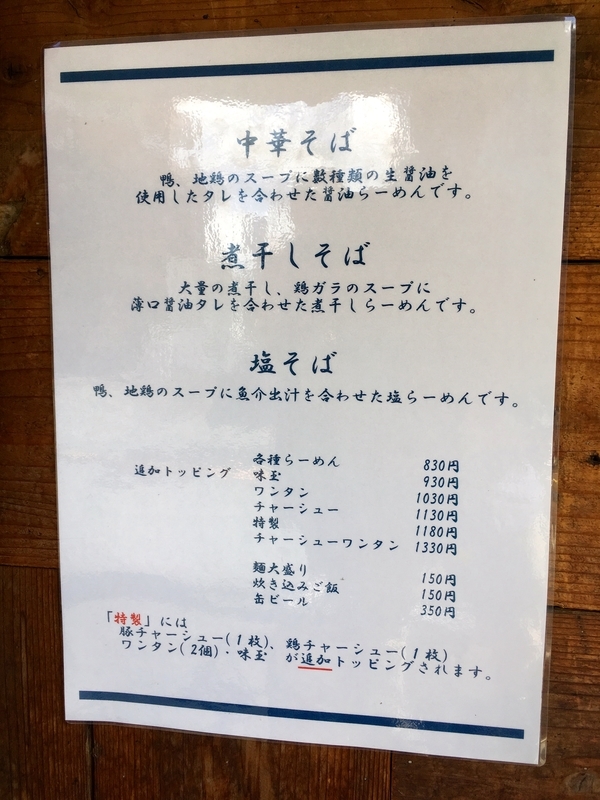 中華そば
鴨、地鶏のスープに数種類の生醤油を
使用したタレを合わせた醤油らーめんです。
煮干しそば
大量の煮干し、鶏ガラのスープに
薄口醤油タレを合わせた煮干しらーめんです。
塩そば
鴨、地鶏のスープに魚介出汁を合わせた塩らーめんです。
各種らーめん 830円
追加トッピング 味玉 930円
ワンタン 1030円
チャーシュー 1130円
特製 1180円
チャーシューワンタン 1330円
麺大盛り 150円
炊き込みご飯 150円
缶ビール 350円
「特製」には
豚チャーシュー(1枚)、鶏チャーシュー(1枚)
ワンタン(2個)・味玉 が追加トッピングされます。